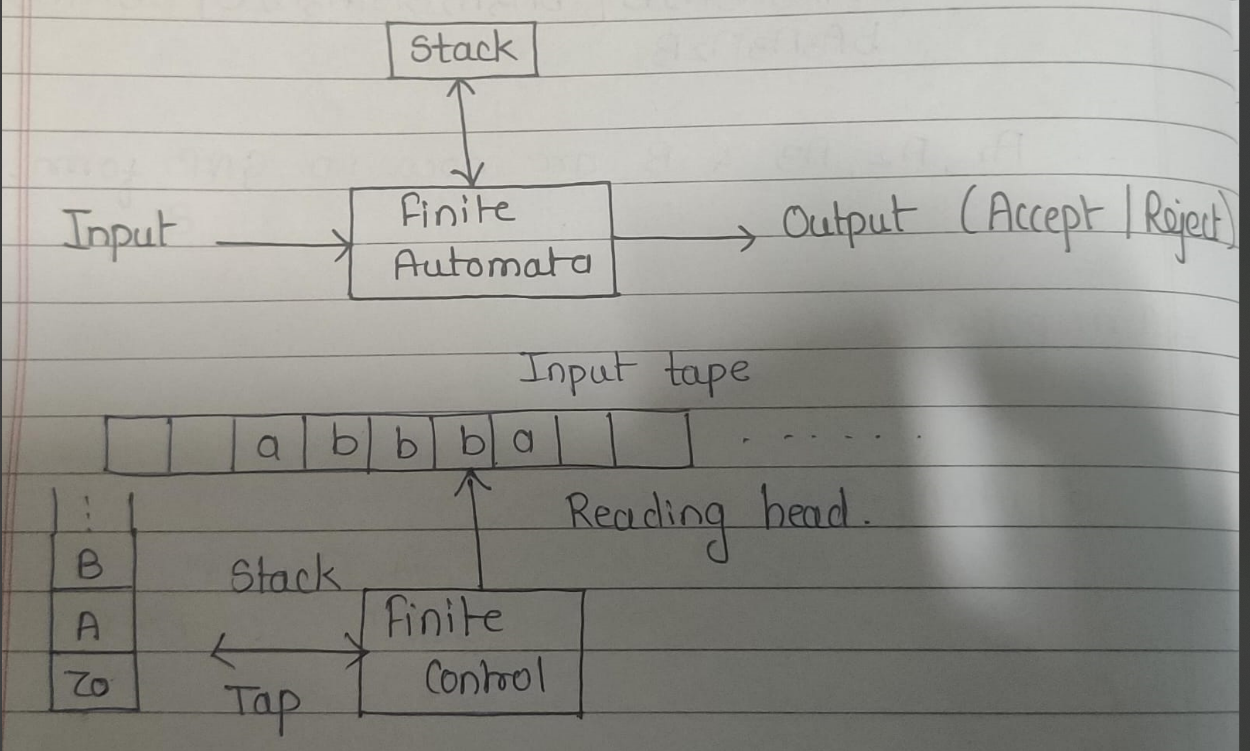 Stack
Input
Finite
Automata
Output (Accept | Reject)
Input tape
a b b b a . . . . . .
Reading head.
⋮
B
A
Z0
Stack
Tap
Finite
Control